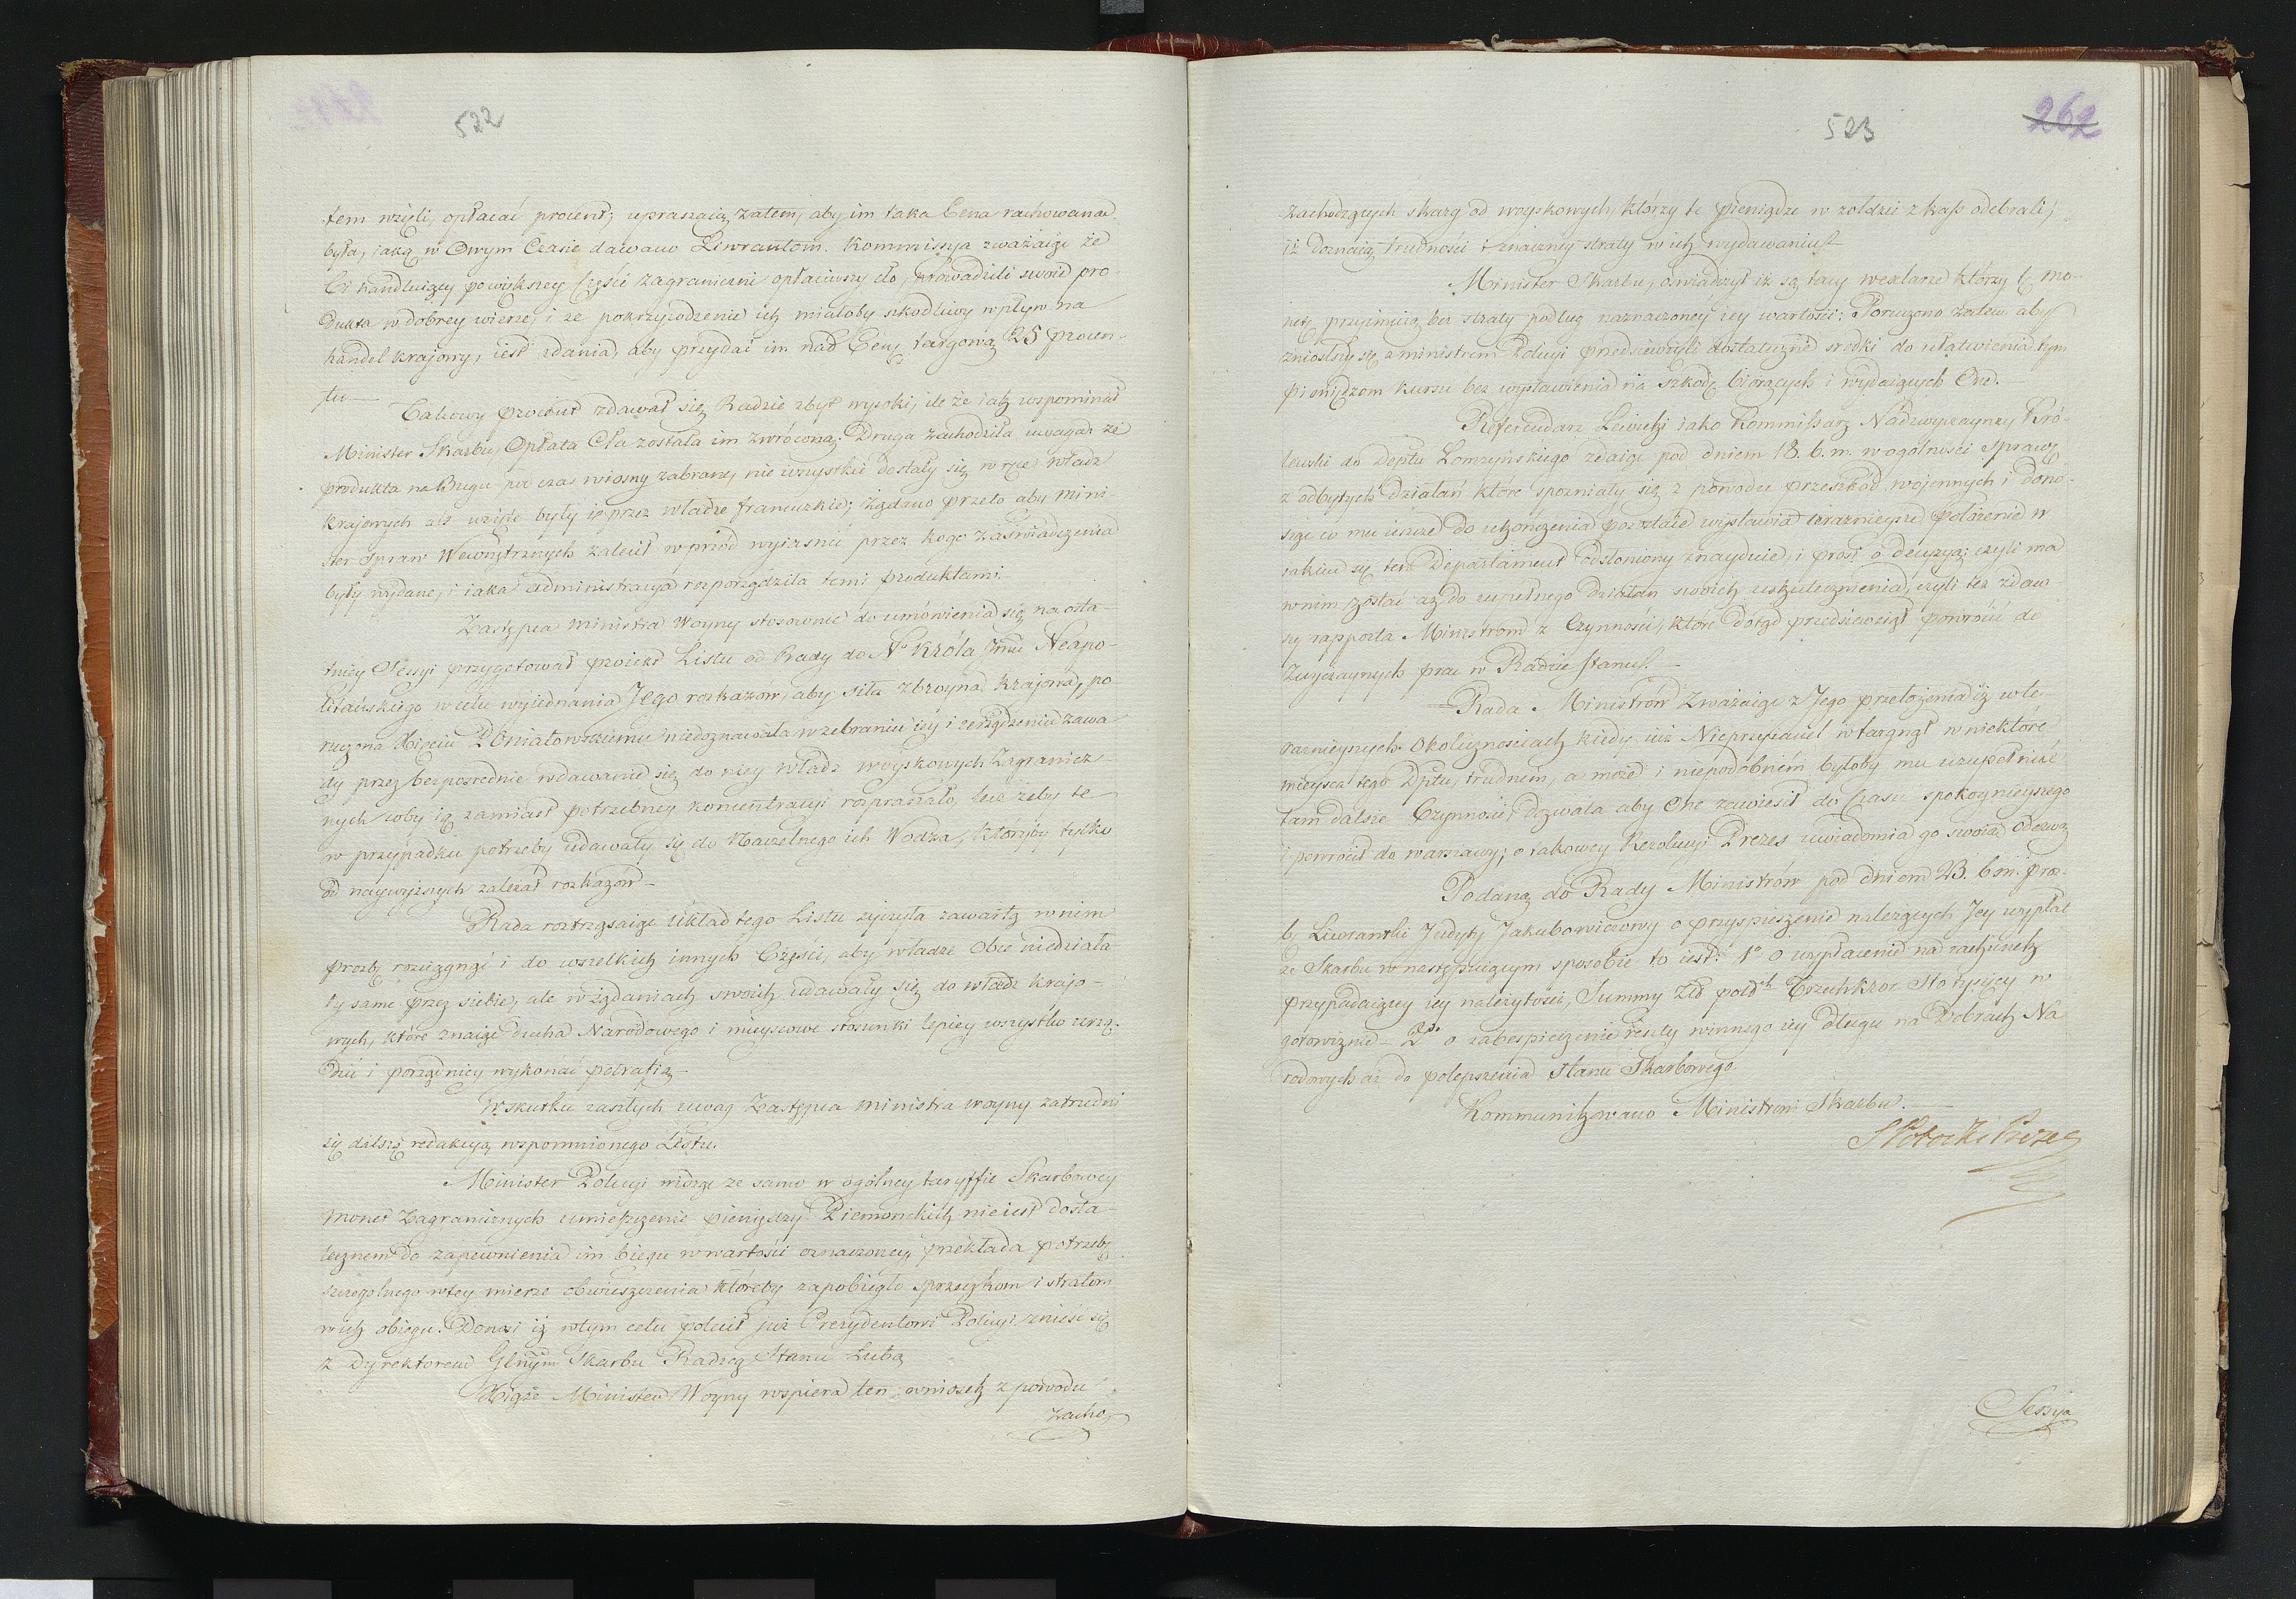 522
tem wzięli, opłacać procent; upraszaią zatem, aby im taka Cena rachowana
była, iaką w Owym Czasie dawano Liwrantom. Kommissya zważaiąc że
Ci handluiący powiększey części zagraniczni opłaciwszy cło, prowadzili swoie pro-
dukta w dobrey wierze, i że pokrzywdzenie ich miałoby szkodliwy wpływ na
handel krajowy, iest zdania, aby przydać im nad Cenę targową 25 procen-
tu
Takowy procent zdawał się Radzie zbyt wysoki, ile że iak wspominał
Minister Skarbu, Opłata Cła została im zwrócona; Druga zachodziła uwaga że
produkta na Bugu pod czas wiosny zabrane, nie wszystkie dostały się w ręce władz
krajowych ale wzięte były i przez władze francuzkie; żądano przeto aby mini-
ster Spraw Wewnętrznych zalecił w przód wyiaśnić przez kogo zaświadczenia
były wydane, i iaka administracya rozporządziła temi produktami.
Zastępca ministra Woyny stosownie do umówienia się na osta-
tniey Sessyi przygotował proiekt Listu od Rady do N° Króla Jmci Neapo-
litańskiego w celu wyiednania Jego rozkazów, aby siła zbroyna krajowa, po
ruczona Xięciu Poniatowskiemu niedoznawała w zebraniu iey i urządzeniu zawa
dy przez bezpośrednie wdawanie się do niey władz woyskowych Zagranicz-
nych coby ią zamiast potrzebney koncentracyi rozpraszało, lecz żeby te
w przypadku potrzeby udawały się do Naczelnego ich Wodza, któryby tylko
od naywyższych zależał rozkazów
Rada roztrząsaiąc Układ tego Listu życzyła zawartą w nim
prozbę rozciągnąć i do wszelkich innych Części, aby władze Obce niedziała
ły same przez siebie, ale w żądaniach swoich udawały się do władz krajo-
wych, które znaiąc ducha Narodowego i mieyscowe stosunki lepiey wszystko urzą-
dzić i porządniey wykonać potrafią
W skutku zaszłych uwag Zastępca ministra woyny zatrudni
się dalszą redakcyą wspomnionego Listu.
Minister Policyi widząc że samo w ogólney taryffie Skarbowey
monet Zagranicznych umieszczenie pieniędzy Piemonckich nie iest dosta-
tecznem do zapewnienia im biegu w wartości oznaczoney, przekłada potrzebę
szczególnego w tey mierze obwieszczenia któreby zapobiegło sprzeczkom i stratom
w ich obiegu. Donosi iż w tym celu polecił już Prezydentowi Policyi znieść się
z Dyrektorem Glnym Skarbu Radzcą Stanu Lubą
Xiąże Minister Woyny wspiera ten wniosek z powodu
zacho
523
262
zachodzących skarg od woyskowych, którzy te pieniądze w żołdzie z kass odebrali;
iż doznaią trudności i znaczney straty w ich wydawaniu
Minister Skarbu, oświadczył iż są tacy wexlarze którzy tę mo-
netę przyimuią bez straty podług naznaczoney iey wartości: Poruczono zatem aby
zniosłszy się z ministrem Policyi przedsięwzięli dostateczne srodki do ułatwienia tym
pieniędzom kursu bez wystawienia na szkodę biorących i wydaiących One.
Referendarz Lewicki iako Kommissarz Nadzwyczayny Kró-
lewski do Deptu Łomżyńskiego zdaiąc pod dniem 18. b. m. w ogólności Sprawę
z odbytych działań które spozniały się z powodu przeszkód woiennych i dono-
sząc co mu ieszcze do ukończenia pozostaie wystawia teraznieysze położenie w
iakiem się ten Departament odsłoniony znayduie, i prosi o decyzyą; czyli ma
w nim zostać aż do zupełnego działań swoich uskutecznienia, czyli też zdaw-
szy rapporta Ministrom z Czynności, które dotąd przedsięwziął powrócić do
zwyczaynych prac w Radzie Stanu.
Rada Ministrów Zważaiąc z Jego przełożenia iż w te
raznieyszych okolicznościach kiedy iuż Nieprzyiaciel wtargnął w niektóre
mieysca tego Dptu, trudnem, a może i niepodobném byłoby mu uzupełnić
tam dalsze Czynności, Dozwala aby One zawiesił do Czasu spokoynieyszego
i powrócił do warszawy; o takowey Rezolucyi Prezes uwiadomia go swoią odezwą
Podaną do Rady Ministrów pod dniem 23. b. m. proz-
bę Liwerantki Judyty Jakubowiczowy o przyspieszenie należących Jey wypłat
ze Skarbu w następuiącym sposobie to iest: 1° o wypłacenie na rachunek
przypadaiącey iey należytości, Summy Zło polch Trzechkroć Sto tysięcy w
gotowiznie - 2do o zabespieczenie reszty winnego iey długu na Dobrach Na
rodowych aż do polepszenia Stanu Skarbowego
Kommunikowano Ministrowi Skarbu.
S Potocki Prezes
Sessya